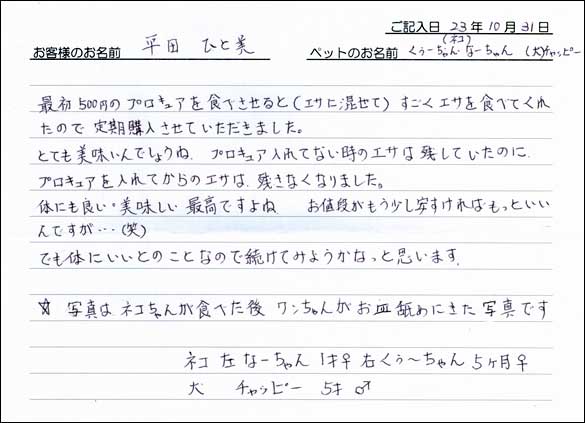 ご記入日 23年10月31日
お客様のお名前 平田 ひと美 ペットのお名前 (ネコ)くぅーちゃん なーちゃん (犬)チャッピー
最初500円のプロキュアを食べさせると(エサに混ぜて)すごくエサを食べてくれ
たので定期購入させていただきました。
とても美味いんでしょうね. プロキュア入れてない時のエサは残していたのに.
プロキュアを入れてからのエサは.残さなくなりました。
体にも良い・美味しい 最高ですよね お値段がもう少し安すければもっといい
んですが…(笑)
でも体にいいとのことなので続けてみようかなっと思います.
☆ 写真はネコちゃんが食べた後 ワンちゃんがお皿舐めにきた写真です
ネコ 左 なーちゃん 1才♀ 右 くぅ〜ちゃん 5ヶ月♀
犬 チャッピー 5才 ♂